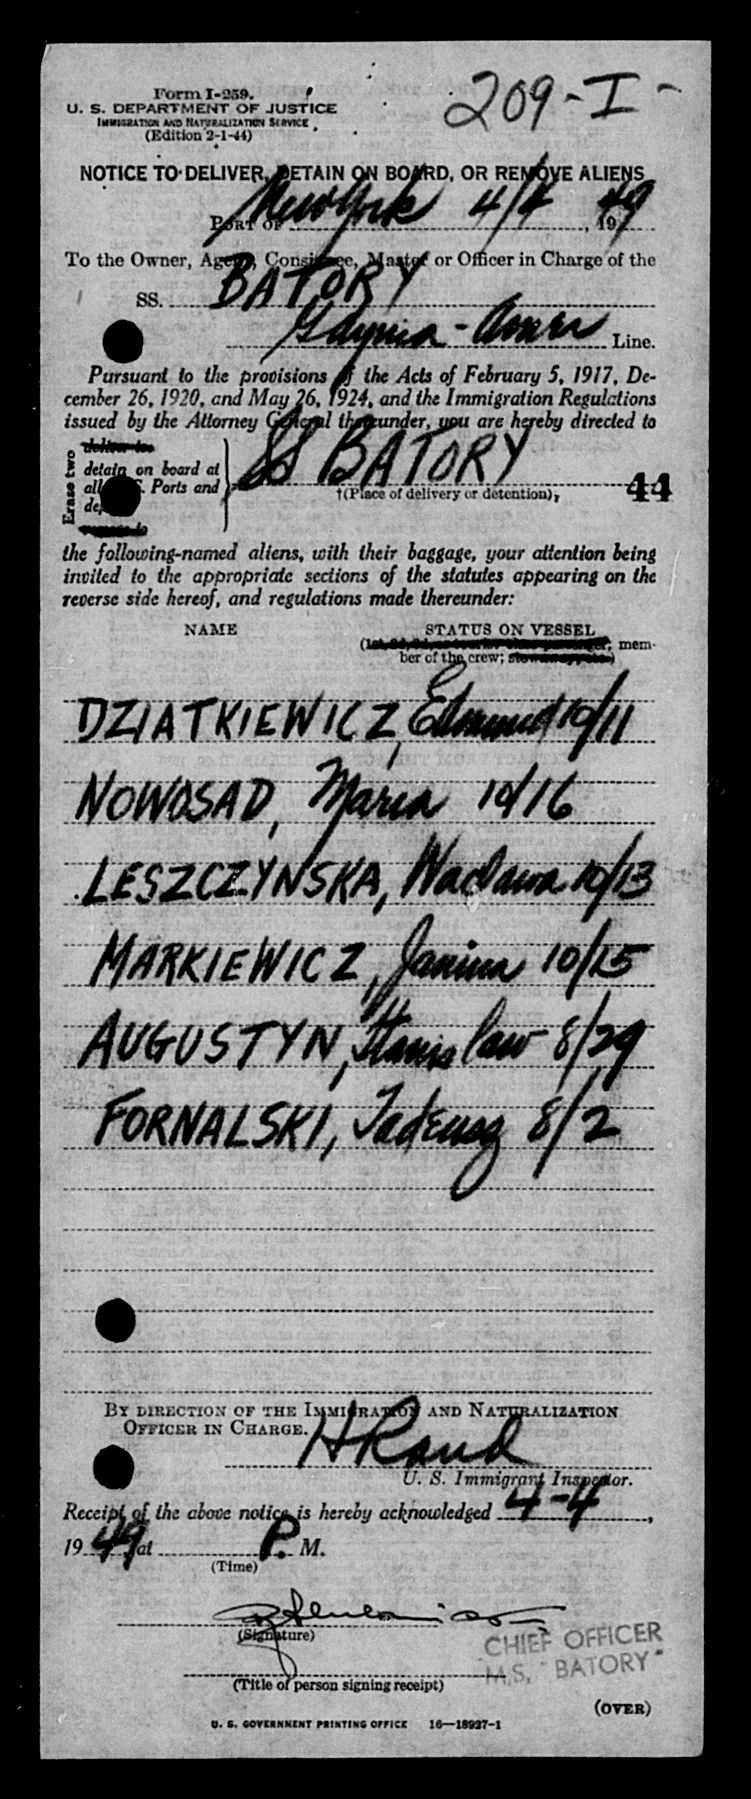 Form I-259.
209-I-
U. S. DEPARTMENT OF JUSTICE
IMMIGRATION AND NATURALIZATION SERVICE
(Edition 2-1-44)
NOTICE TO DELIVER, DETAIN ON BOARD, OR REMOVE ALIENS
PORT OF New York 4/4, 1949
To the Owner, Agent, Consignee, Master or Officer in Charge of the
SS. BATORY
Gdynia-Amer Line.
Pursuant to the provisions of the Acts of February 5, 1917, De-
cember 26, 1920, and May 26, 1924, and the Immigration Regulations
issued by the Attorney General thereunder, you are hereby directed to
Erase two
deliver to
detain on board at
all U. S. Ports and
SS BATORY
44
†(Place of delivery or detention),
the following-named aliens, with their baggage, your attention being
invited to the appropriate sections of the statutes appearing on the
reverse side hereof, and regulations made thereunder:
NAME STATUS ON VESSEL
mem-
ber of the crew;
DZIATKIEWICZ, Edmund 10/11
NOWOSAD, Maria 10/16
LESZCZYNSKA, Waclawa 10/13
MARKIEWICZ, Janina 10/15
AUGUSTYN, Stanislaw 8/29
FORNALSKI, Tadeusz 8/2
BY DIRECTION OF THE IMMIGRATION AND NATURALIZATION
OFFICER IN CHARGE.
H Rand
U. S. Immigrant Inspector.
Receipt of the above notice is hereby acknowledged 4-4,
1949 at P. M.
(Time)
(Signature)
CHIEF OFFICER
M.S. "BATORY"
(Title of person signing receipt)
(OVER)
U. S. GOVERNMENT PRINTING OFFICE 16—18927-1